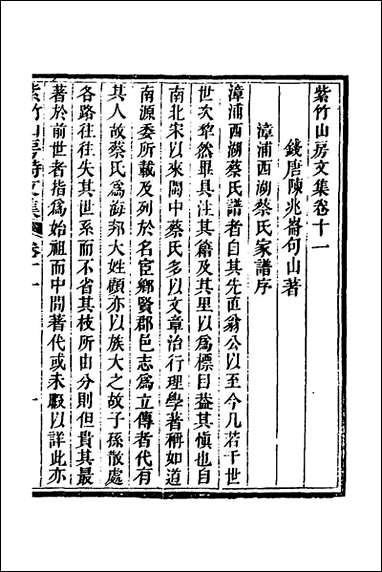 紫竹山房文集卷十一
錢唐陳兆崙句山著
漳浦西湖蔡氏家譜序
漳浦西湖蔡氏譜者自其先直翁公以至今凡若干世
世次犂然畢具注其籍及其里以為標目葢其愼也自
南北宋以來閩中蔡氏多以文章治行理學著稱如道
南源委所載及列於名宦鄉賢郡邑志為立傳者代有
其人故蔡氏為海邦大姓顧亦以族大之故子孫散處
各路往往失其世系而不省其枝所由分則但貴其最
著於前世者指為始祖而中間著代或未暇以詳此亦
紫竹山房詩文集 卷十一 一